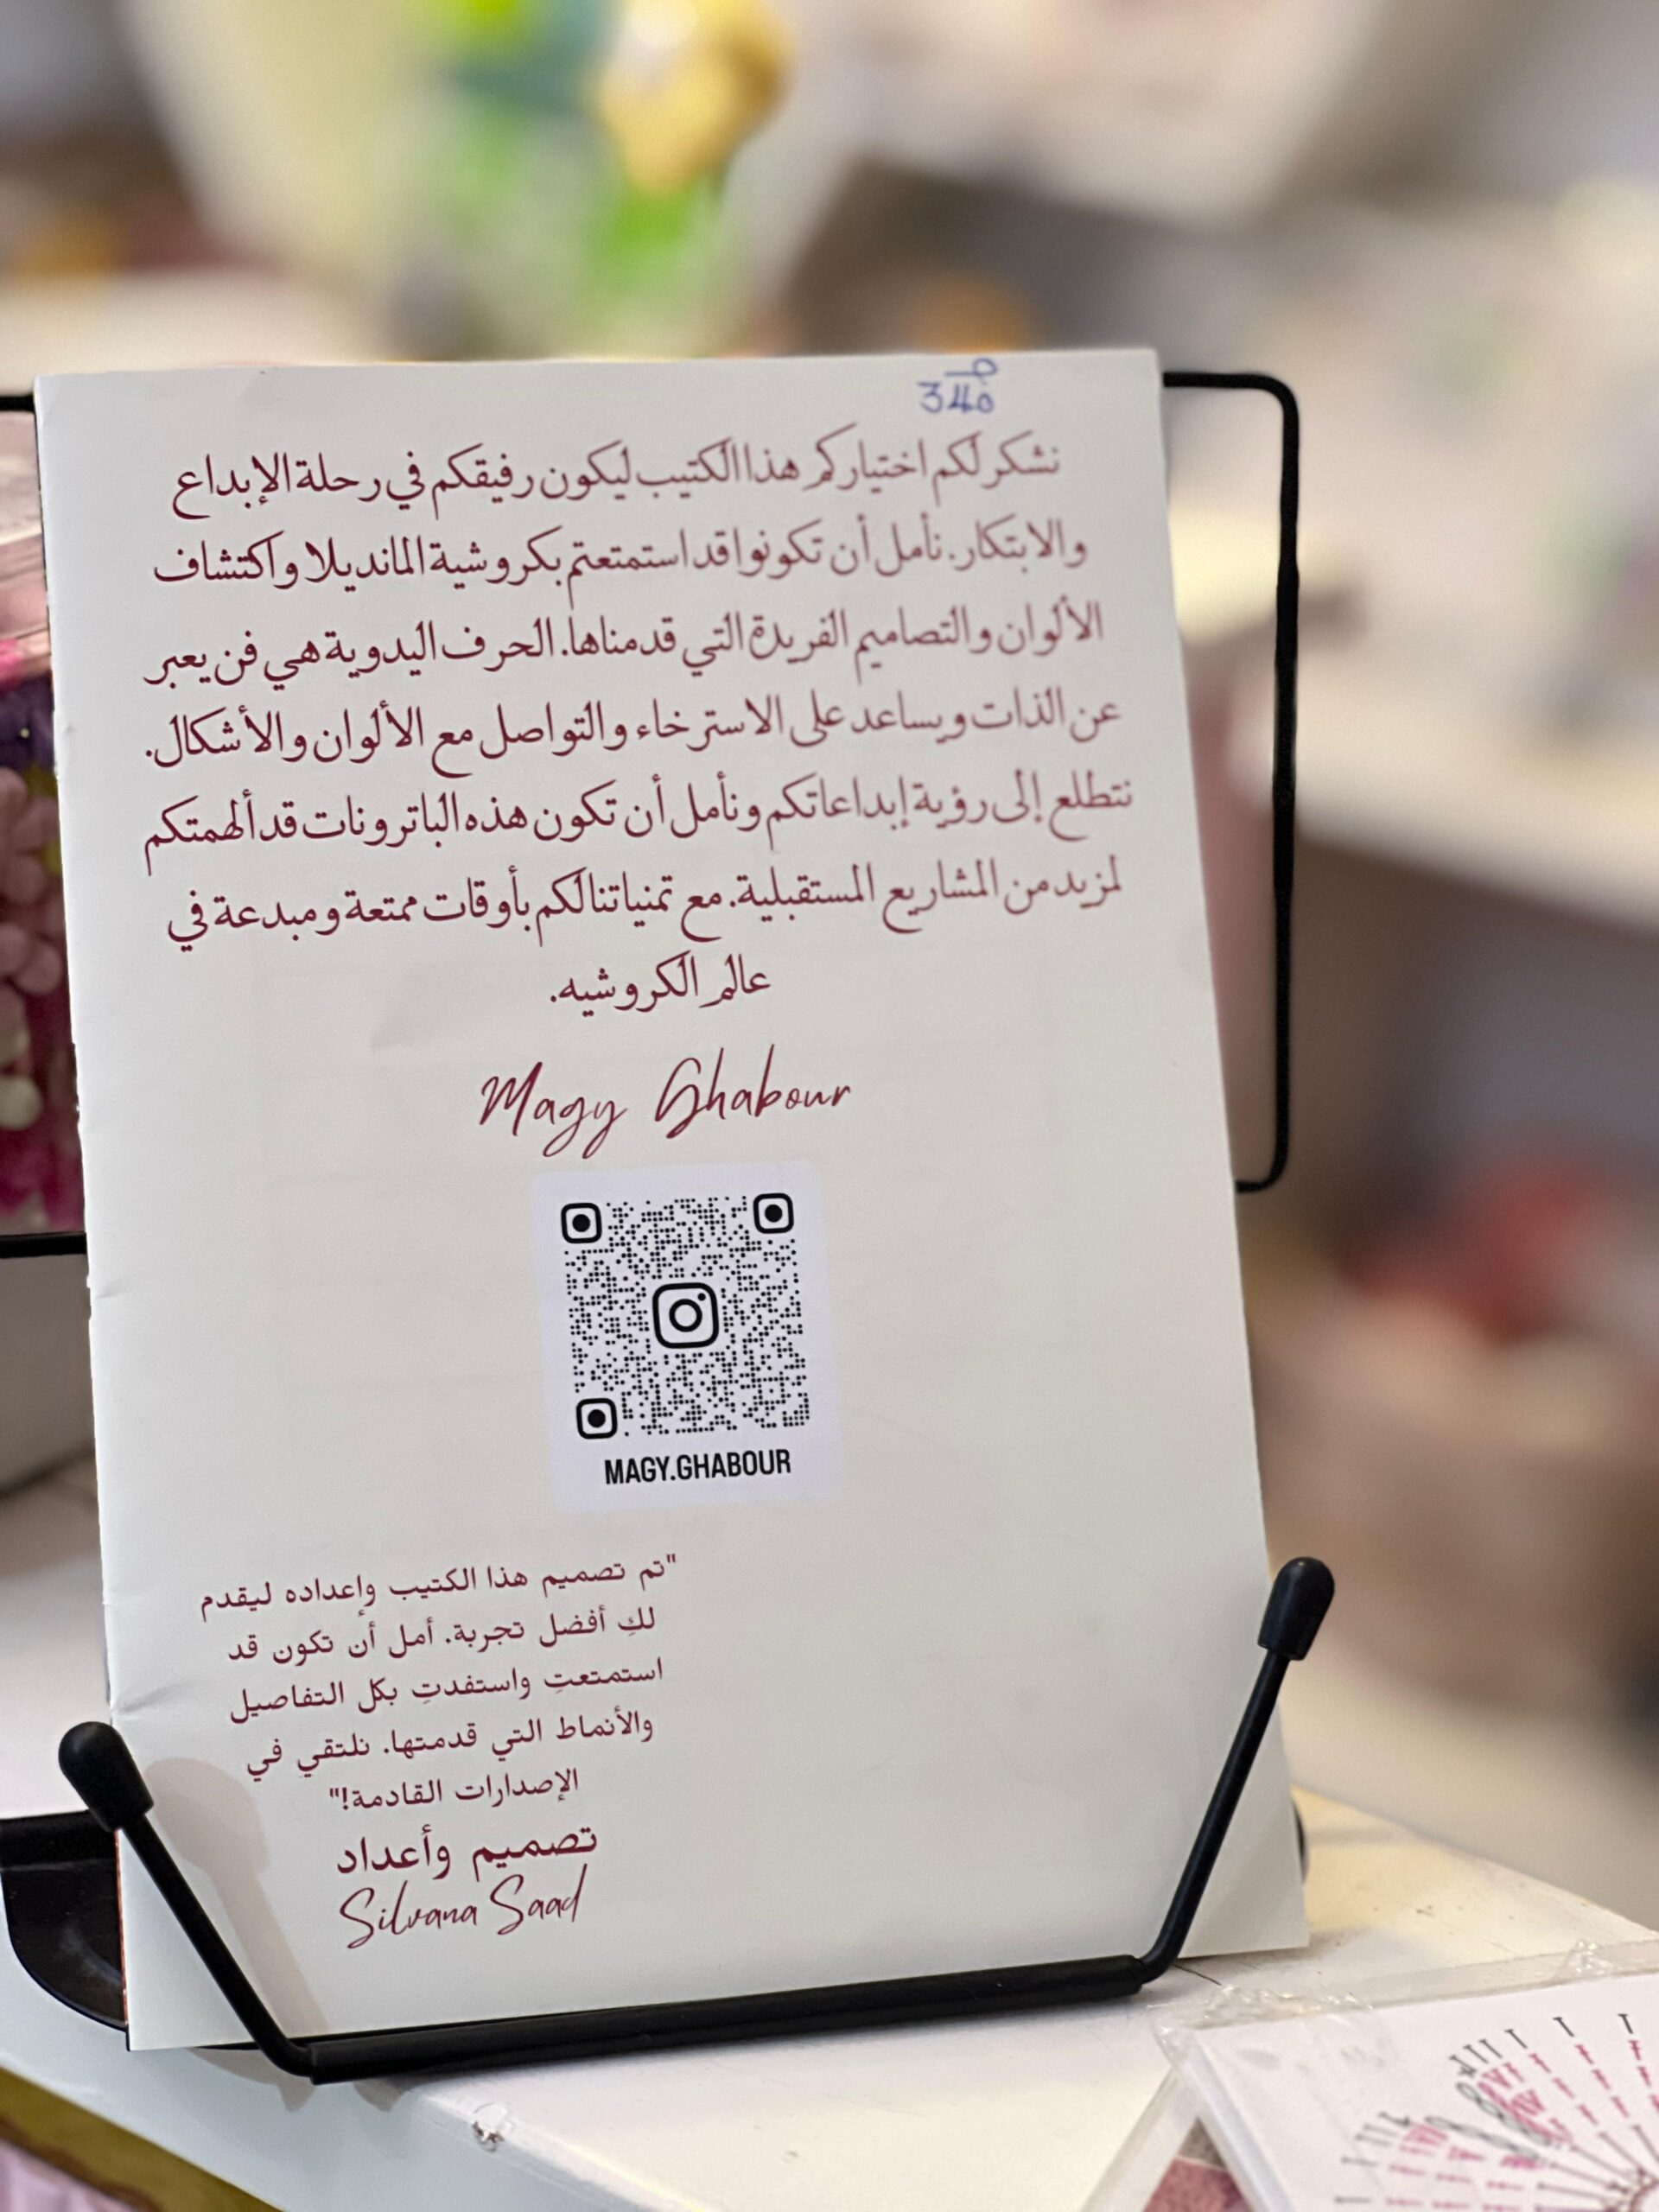 340
نشكر لكم اختياركم هذا الكتيب ليكون رفيقكم في رحلة الإبداع
والابتكار. نأمل أن تكونوا قد استمتعتم بكروشية الماندیلا واكتشاف
الألوان والتصاميم الفريدة التي قدمناها. الحرف اليدوية هي فن يعبر
عن الذات ويساعد على الاسترخاء والتواصل مع الألوان والأشكال.
نتطلع إلى رؤية إبداعاتكم ونأمل أن تكون هذه الباترونات قد ألهمتكم
لمزيد من المشاريع المستقبلية. مع تمنياتنا لكم بأوقات ممتعة ومبدعة في
عالم الكروشيه.
Magy Ghabour
MAGY.GHABOUR
"تم تصميم هذا الكتيب وإعداده ليقدم
لكِ أفضل تجربة. أمل أن تكون قد
استمتعتِ واستفدتِ بكل التفاصيل
والأنماط التي قدمتها. نلتقي في
الإصدارات القادمة!"
تصميم وأعداد
Silvana Saad